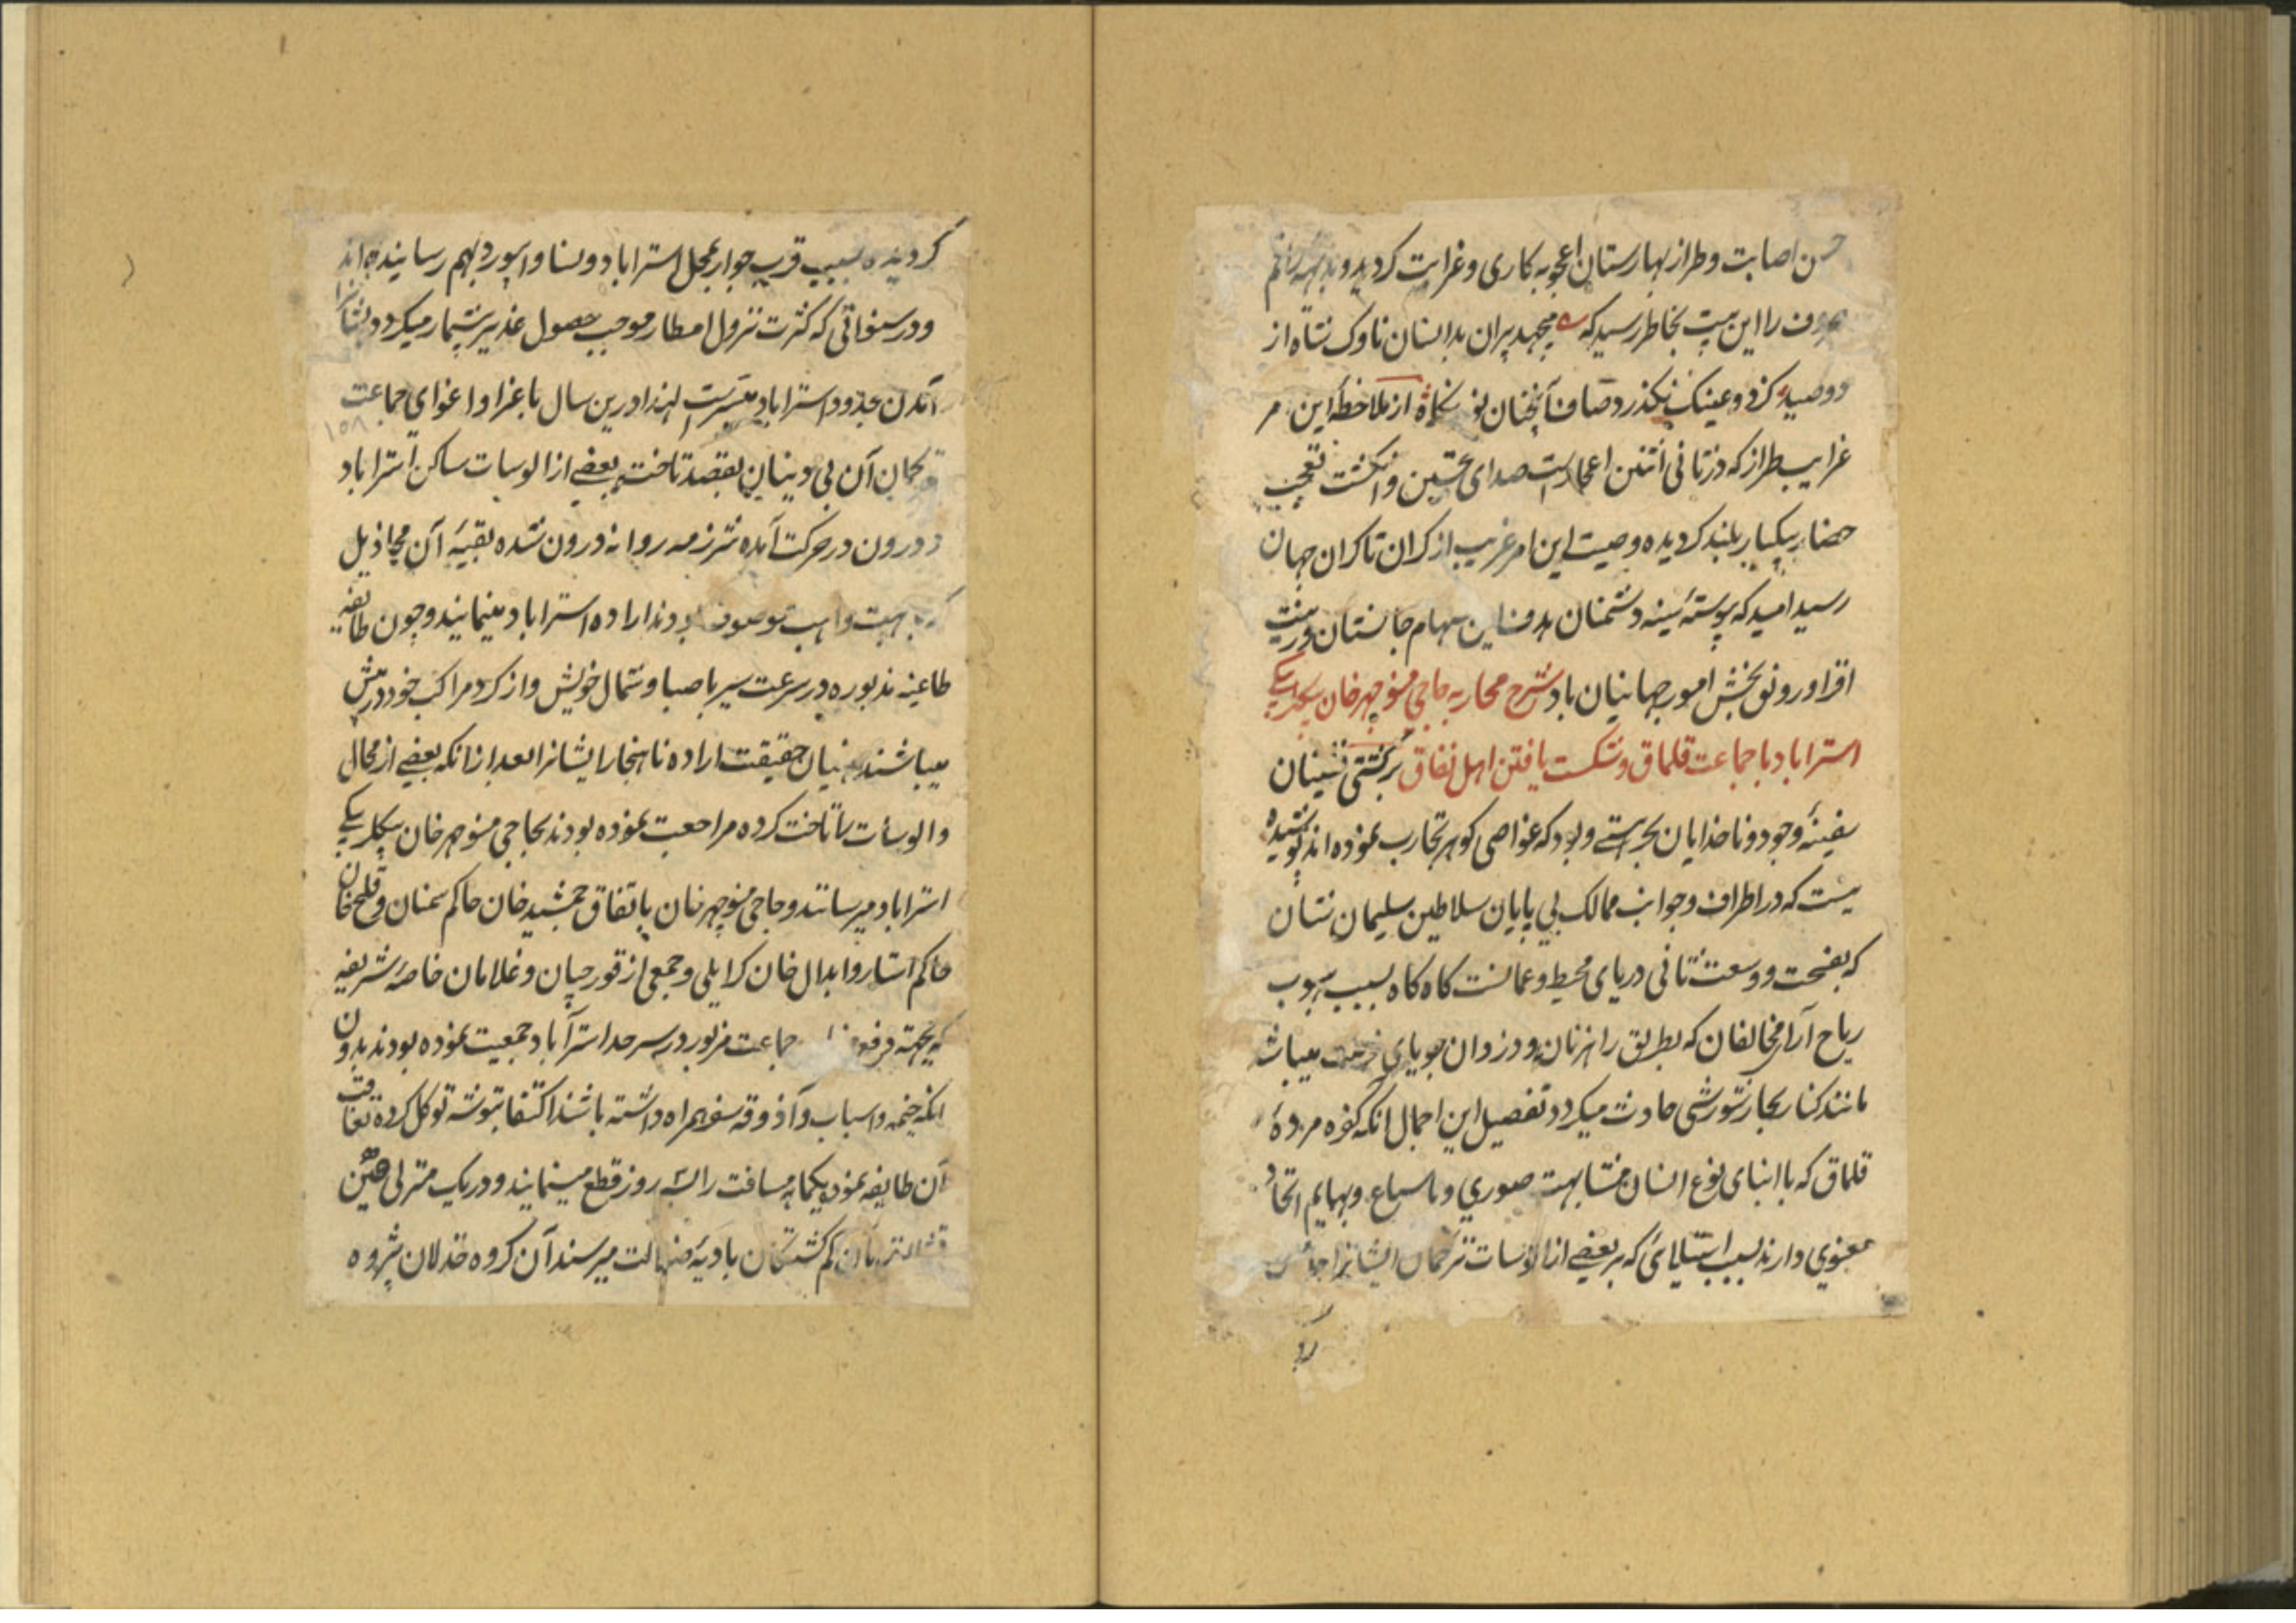 حسن اصابت و طراز بهارستان اعجوبه کاری و غرابت کردید و
را این بیت بخاطر رسید که میجهد پیران بدانسان ناوک شاه از
دو صید کز دو عینک بگذرد صاف آنچنان نور نگاه از ملاحظهٔ این امر
غرایب طراز که در ثانی اثنین اعجاز است صدای تحسین و انکشت تعجب
حضار بیکبار بلند کردیده وصیت این امر غریب از کران تا کران جهان
رسید امید که پیوسته سینه دشمنان هدف این سهام جانستان و زینت
افزا و رونق بخش امور جهانیان باد شرح محاربه حاجی منوچهرخان بیکلربیکی
استراباد با جماعت قلماق و شکست یافتن اهل نفاق بر کشتی نشینان
سفینهٔ وجود و ناخدایان بحر هستی و بود که غواصی کوهر تجارب نموده اند پوشیده
نیست که در اطراف و جوانب ممالک بی پایان سلاطین سلیمان نشان
که بفسحت و وسعت ثانی دریای محیط و عمانست کاه کاه بسبب هبوب
ریاح آرای مخالفان که بطریق راهزنان و دزدان جویای فرصت میباشند
مانند کنار بحار شورشی حادث میکردد تفصیل این اجمال آنکه کفره مردهٔ
قلماق که با ابنای نوع انسان مشابهت صوری و با سباع و بهایم اتحاد
معنوی دارند بسبب استیلائی که بر بعضی از الوسات ترکمان ایشانرا
کردیده بسبب قرب جوار بمحل استراباد و نسا و ابیورد بهم رسانیده اند
و در سنواتی که کثرت نزول امطار موجب حصول غدیر بیشمار میکردد
آمدن بحدود استراباد میسر است لهذا درین سال باغرا و اغوای جماعت
۱۵۸
ترکمان آن بی دینان بقصد تاخت بعضی از الوسات ساکن استراباد
و درون در حرکت آمده شرذمه روانه درون شده بقیهٔ آن مخاذیل
موصوف بودند اراده استراباد مینمایند و چون طایفه
طاغیه مذبوره در سرعت سیر با صبا و شمال خویش و از کرد مراکب خود در پیش
میباشند منهیان حقیقت اراده ناهنجار ایشانرا بعد از انکه بعضی از محال
و الوسات را تاخت کرده مراجعت نموده بودند بحاجی منوچهرخان بیکلربیکی
استراباد میرسانند و حاجی منوچهرخان باتفاق جمشیدخان حاکم سمنان و قلیچ خان
حاکم استارو ابدال خان کرایلی و جمعی از قورچیان و غلامان خاصه شریفه
که بجهته دفع جماعت مزبور در سرحد استرآباد جمعیت نموده بودند بدون
انکه خیمه و اسباب و آذوقه سفر همراه داشته باشند اکتفا بتوشه توکل کرده تعاقب
آن طایفه نموده یکماهه مسافت را سه روز قطع مینمایند و در یک منزلی
بآن کم کشتکان بادیهٔ ضلالت میرسند آن کروه خذلان پژوه